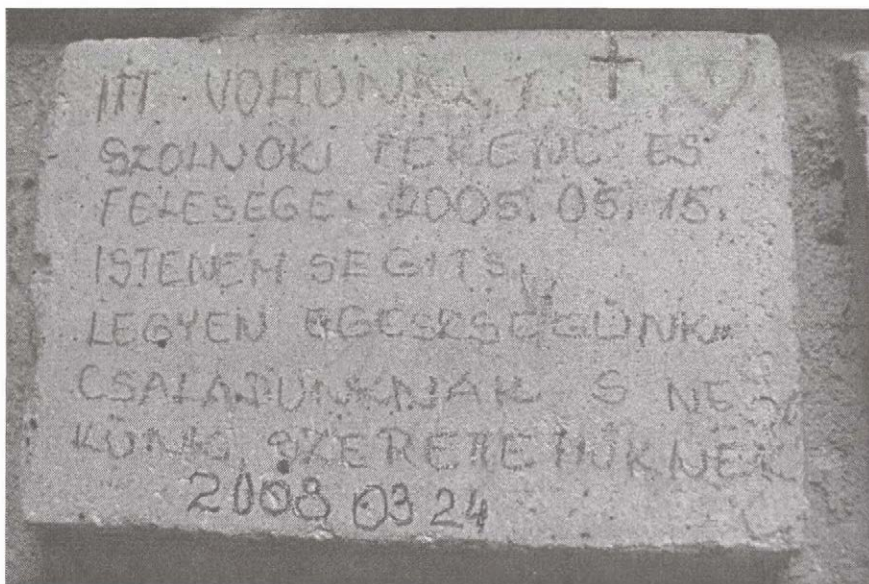 ITT VOLTUNK
SZOLNOKI FERENC ES
FELESEGE. 2005. 05. 15.
ISTENEM SEGITS
LEGYEN EGESESEGUNK
CSALADUNKNAK S NE
KUNK SZERETETTÜKNEK
2008 03 24